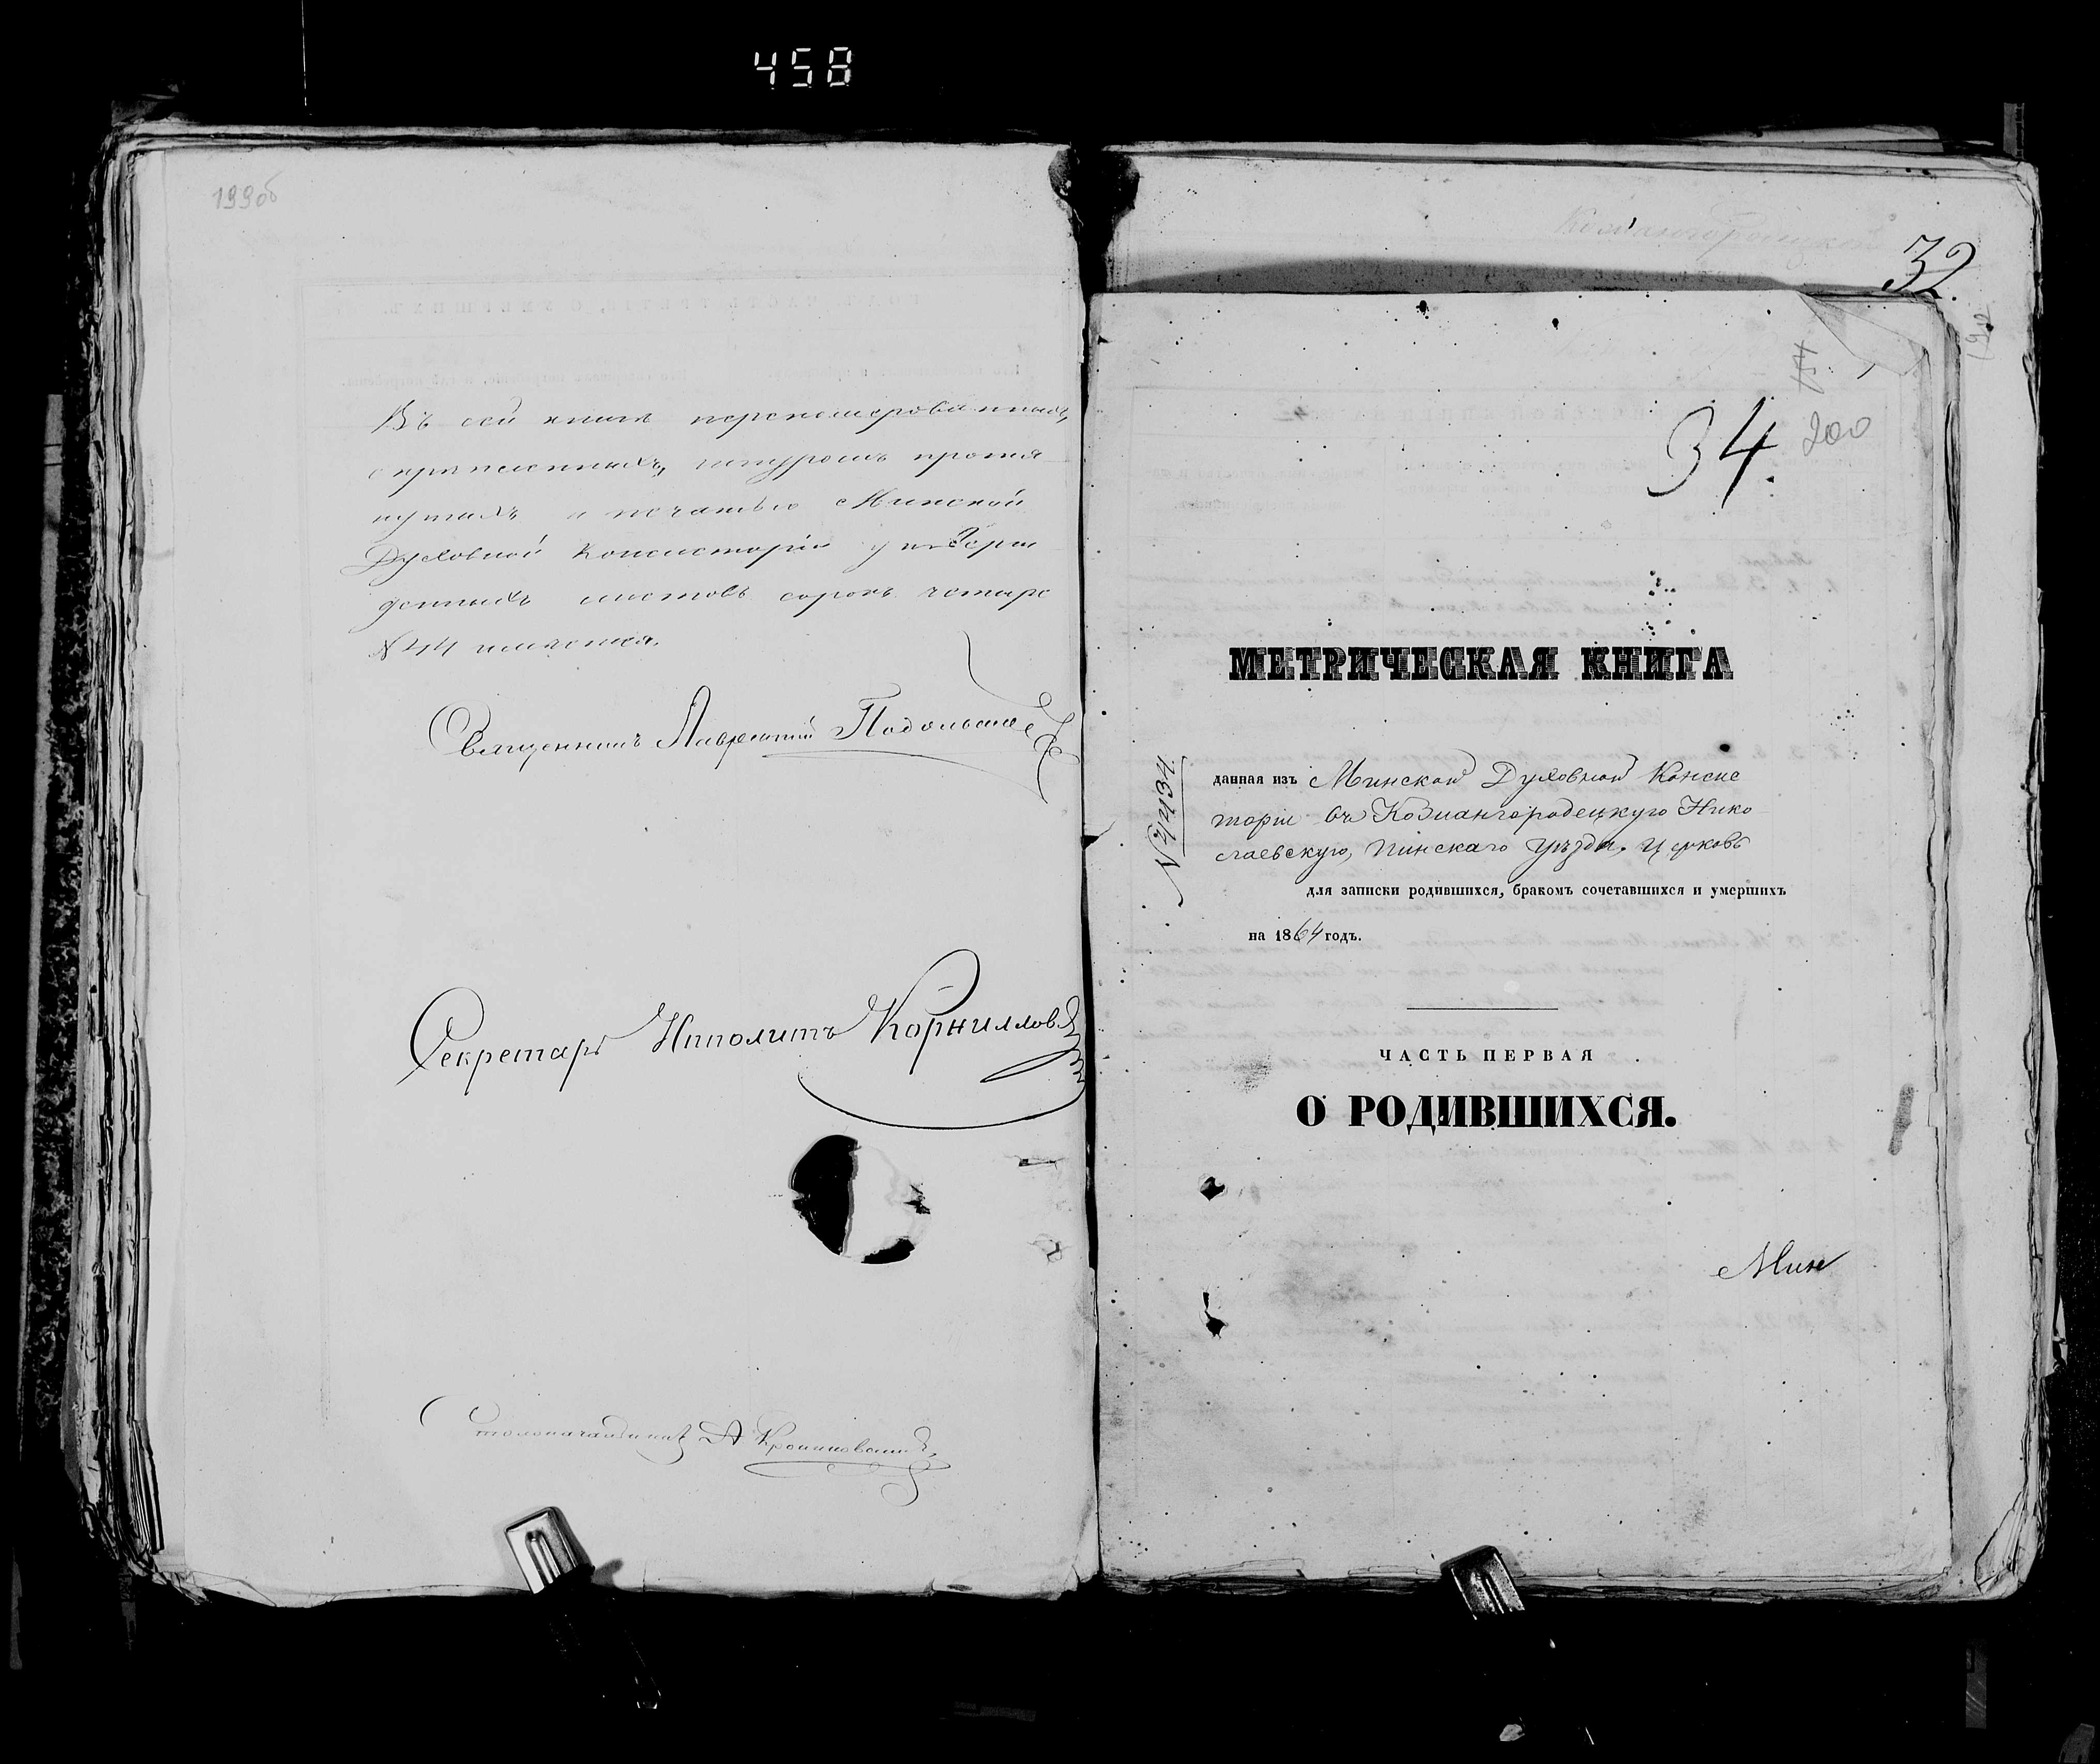 458
199об
Въ сей книгѣ перенумерованныхъ,
скрѣпленныхъ, шнуромъ протя
нутыхъ и печатью Минской
Духовной Консисторіи утверж
денныхъ листовъ сорокъ четыре
№ 44 имѣется.
Священникъ Лаврентій
Секретарь Ипполитъ Корниллов
Столоначальникъ А
32.
34.
200
МЕТРИЧЕСКАЯ КНИГА
№ 4434
данная изъ Минской Духовной Консис
торіи въ Кожангородецкую Нико
лаевскую, Пинскаго уѣзда, Церковь
для записки родившихся, бракомъ сочетавшихся и умершихъ
на 1864 годъ.
ЧАСТЬ ПЕРВАЯ
О РОДИВШИХСЯ.
Мин